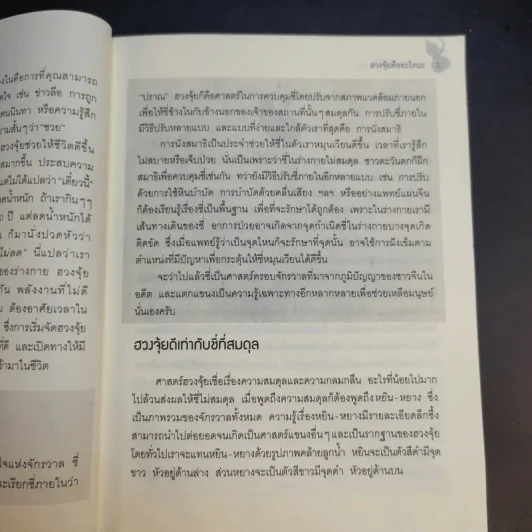 งในคือการที่คุณสามารถ
ตใจ เช่น ข่าวลือ การถูก
คนนินทา หรือความรู้สึก
มสั้นๆ ว่า "ซวย"
ฮวงจุ้ยช่วยให้ชีวิตดีขึ้น
สมากขึ้น ประสบความ
แต่ไม่ได้แปลว่า "เดี๋ยวนี้"
น้ำหนัก ถ้าเรากินๆๆ
ปี แต่ลดน้ำหนักได้
ก็มานั่งปวดหัวว่า
ไม่ลด" นี่แปลว่าเรา
ของร่างกาย ฮวงจุ้ย
น พลังงานที่ไม่ดี
ต้องอาศัยเวลาใน
ซึ่งการเริ่มจัดฮวงจุ้ย
ที่ดี และเปิดทางให้มี
ข้ามาในชีวิต
ใจแห่งจักรวาล ชี่
ะเรียกชี่ภายในว่า
ฮวงจุ้ยคืออะไรนะ
"ปราณ" ฮวงจุ้ยก็คือศาสตร์ในการควบคุมชี่โดยปรับจากสภาพแวดล้อมภายนอก
เพื่อให้ชี่ข้างในกับข้างนอกของเจ้าของสถานที่นั้นๆ สมดุลกัน การปรับชี่ภายใน
มีวิธีปรับหลายแบบ และแบบที่ง่ายและใกล้ตัวเราที่สุดคือ การนั่งสมาธิ
การนั่งสมาธิเป็นประจำช่วยให้ชี่ในตัวเราหมุนเวียนดีขึ้น เวลาที่เรารู้สึก
ไม่สบายหรือเจ็บป่วย นั่นเป็นเพราะว่าชี่ในร่างกายไม่สมดุล ชาวตะวันตกก็ฝึก
สมาธิเพื่อควบคุมชี่เช่นกัน ทว่ายังมีวิธีปรับชี่ภายในอีกหลายแบบ เช่น การปรับ
ด้วยการใช้หินบำบัด การบำบัดด้วยคลื่นเสียง ฯลฯ หรืออย่างแพทย์แผนจีน
ก็ต้องเรียนรู้เรื่องชี่เป็นพื้นฐาน เพื่อที่จะรักษาได้ถูกต้อง เพราะในร่างกายเรามี
เส้นทางเดินของชี่ อาการป่วยอาจเกิดจากจุดกำเนิดชี่ในร่างกายบางจุดเกิด
ติดขัด ซึ่งเมื่อแพทย์รู้ว่าเป็นจุดไหนก็จะรักษาที่จุดนั้น อาจใช้การฝังเข็มตาม
ตำแหน่งที่มีปัญหาเพื่อกระตุ้นให้ชี่หมุนเวียนได้ดีขึ้น
จะว่าไปแล้วชี่เป็นศาสตร์ครอบจักรวาลที่มาจากภูมิปัญญาของชาวจีนใน
อดีต และแตกแขนงเป็นความรู้เฉพาะทางอีกหลากหลายเพื่อช่วยเหลือมนุษย์
นั่นเองครับ
ฮวงจุ้ยดีเท่ากับชี่ที่สมดุล
ศาสตร์ฮวงจุ้ยเชื่อเรื่องความสมดุลและความกลมกลืน อะไรที่น้อยไปมาก
ไปล้วนส่งผลให้ชี่ไม่สมดุล เมื่อพูดถึงความสมดุลก็ต้องพูดถึงหยิน-หยาง ซึ่ง
เป็นภาพรวมของจักรวาลทั้งหมด ความรู้เรื่องหยิน-หยางมีรายละเอียดลึกซึ้ง
สามารถนำไปต่อยอดจนเกิดเป็นศาสตร์แขนงอื่นๆ และเป็นรากฐานของฮวงจุ้ย
โดยทั่วไปเราจะแทนหยิน-หยางด้วยรูปภาพคล้ายลูกน้ำ หยินจะเป็นตัวสีดำมีจุด
ขาว หัวอยู่ด้านล่าง ส่วนหยางจะเป็นตัวสีขาวมีจุดดำ หัวอยู่ด้านบน